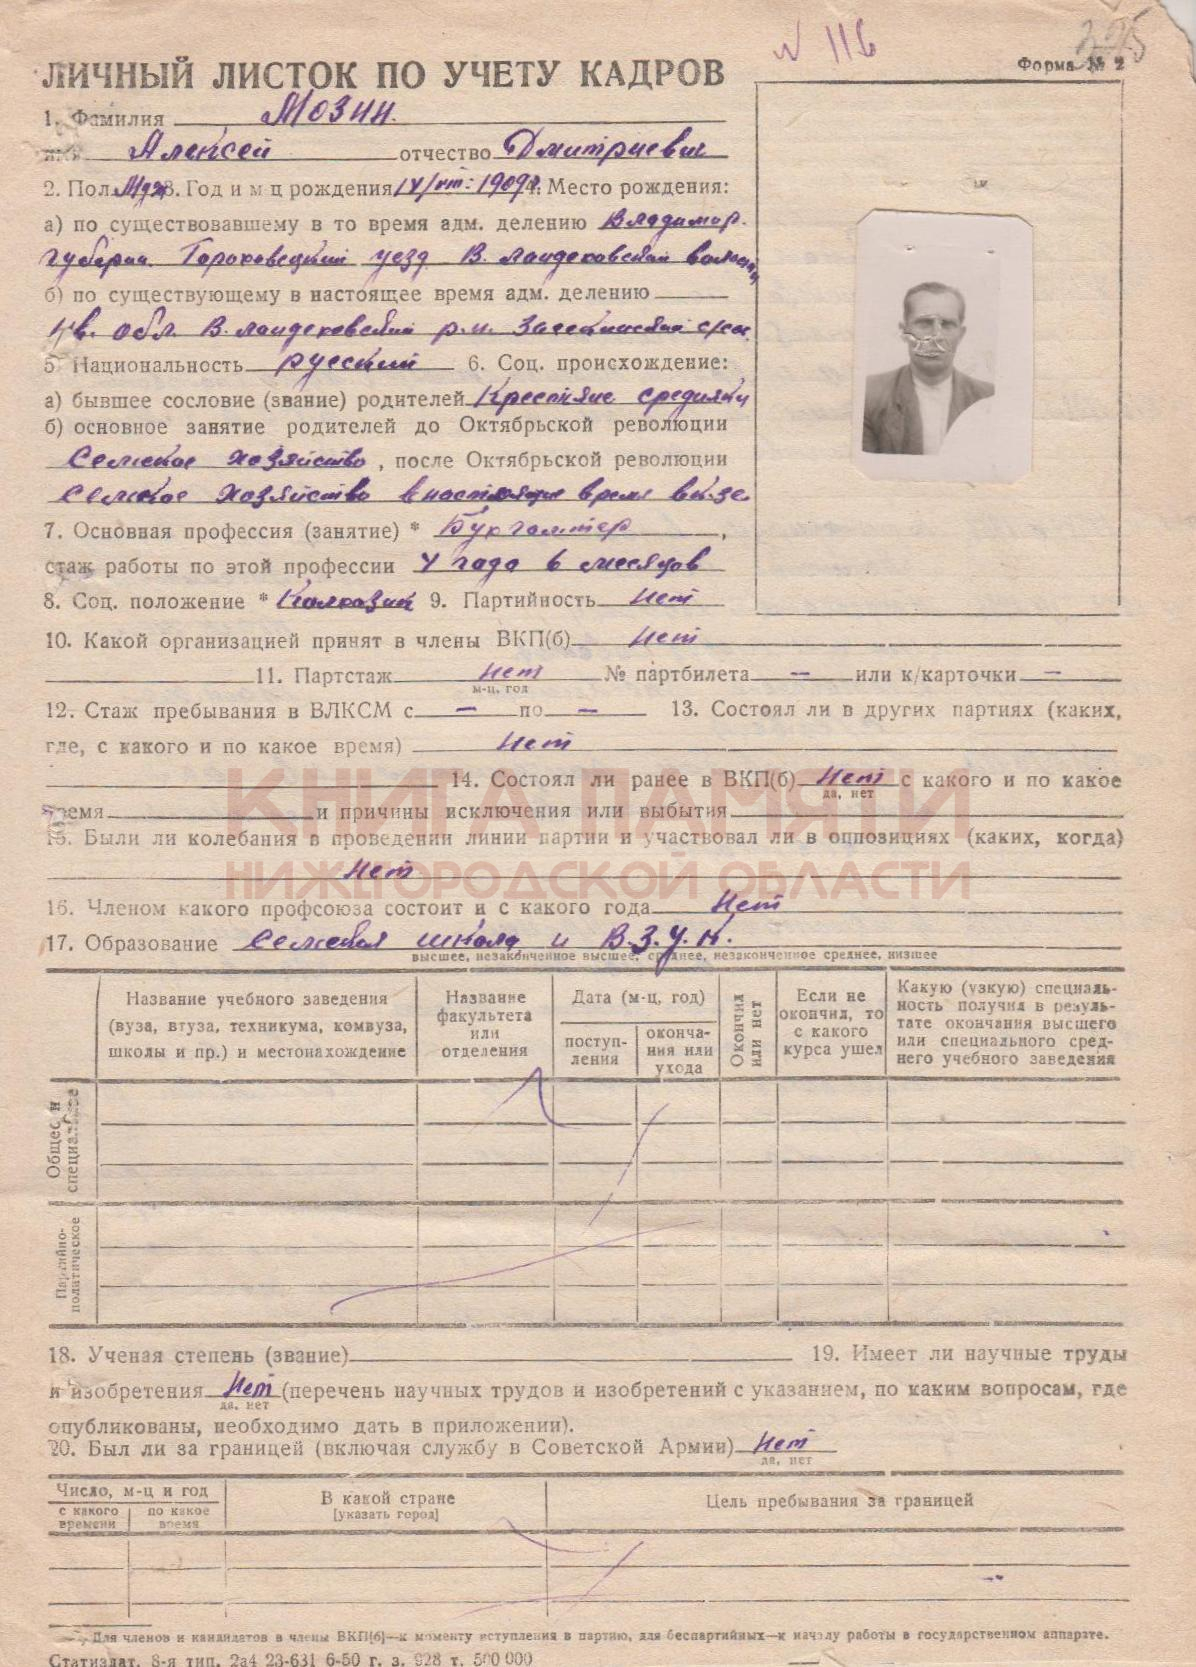 N 116
325
ЛИЧНЫЙ ЛИСТОК ПО УЧЕТУ КАДРОВ
Форма № 2
1. Фамилия Мозин.
имя Алексей отчество Дмитриевич
2. Пол Муж 3. Год и м-ц рождения 4. Место рождения:
а) по существовавшему в то время адм. делению Владимир.
губерни. Гороховецкий уезд В. ландеховский волости
б) по существующему в настоящее время адм. делению
Ив. обл. В. ландеховский р.н.
5. Национальность русский 6. Соц. происхождение:
а) бывшее сословие (звание) родителей Крестьяне средняки
б) основное занятие родителей до Октябрьской революции
Сельское хозяйство, после Октябрьской революции
сельское хозяйство в настоящее время
7. Основная профессия (занятие) * Бухгалтер,
стаж работы по этой профессии года 6 месяцов
8. Соц. положение * Колхозник 9. Партийность Нет
10. Какой организацией принят в члены ВКП(б) Нет
11. Партстаж Нет № партбилета — или к/карточки —
м-ц, год
12. Стаж пребывания в ВЛКСМ с — по — 13. Состоял ли в других партиях (каких,
где, с какого и по какое время) Нет
14. Состоял ли ранее в ВКП(б) Нет с какого и по какое
да, нет
время и причины исключения или выбытия
15. Были ли колебания в проведении линии партии и участвовал ли в оппозициях (каких, когда)
Нет
КНИГА ПАМЯТИ
НИЖЕГОРОДСКОЙ ОБЛАСТИ
16. Членом какого профсоюза состоит и с какого года Нет
17. Образование Сельская школа и В.З.У.К.
высшее, незаконченное высшее, среднее, незаконченное среднее, низшее
Название учебного заведения
(вуза, втуза, техникума, комвуза,
школы и пр.) и местонахождение
Название
факультета
или
отделения
Дата (м-ц, год)
поступ-
ления
оконча-
ния или
ухода
Окончил
или нет
Если не
окончил, то
с какого
курса ушел
Какую (узкую) специаль-
ность получил в резуль-
тате окончания высшего
или специального сред-
него учебного заведения
Общее и
специальное
Партийно-
политическое
18. Ученая степень (звание) 19. Имеет ли научные труды
и изобретения Нет (перечень научных трудов и изобретений с указанием, по каким вопросам, где
да, нет
опубликованы, необходимо дать в приложении).
20. Был ли за границей (включая службу в Советской Армии) Нет
да, нет
Число, м-ц и год
с какого
времени
по какое
время
В какой стране
[указать город]
Цель пребывания за границей
Для членов и кандидатов в члены ВКП(б)—к моменту вступления в партию, для беспартийных—к началу работы в государственном аппарате.
Статиздат. 8-я тип. 2а4 23-631 6-50 г. з. 928 т. 500 000